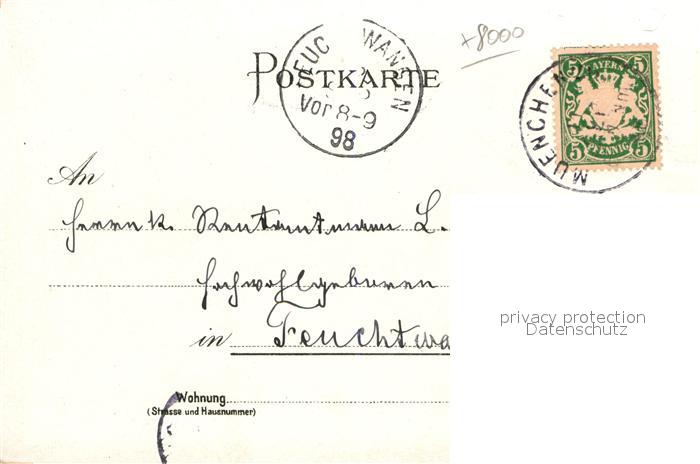 +8000
POSTKARTE
FEUCHTWANGEN
Vor 8-9
98
BAYERN
5 5
5 5
PFENNIG
MUENCHEN
An
Herrn k. Rentamtmann L.
Hochwohlgeboren
in Feuchtwa
privacy protection
Datenschutz
Wohnung
(Strasse und Hausnummer)